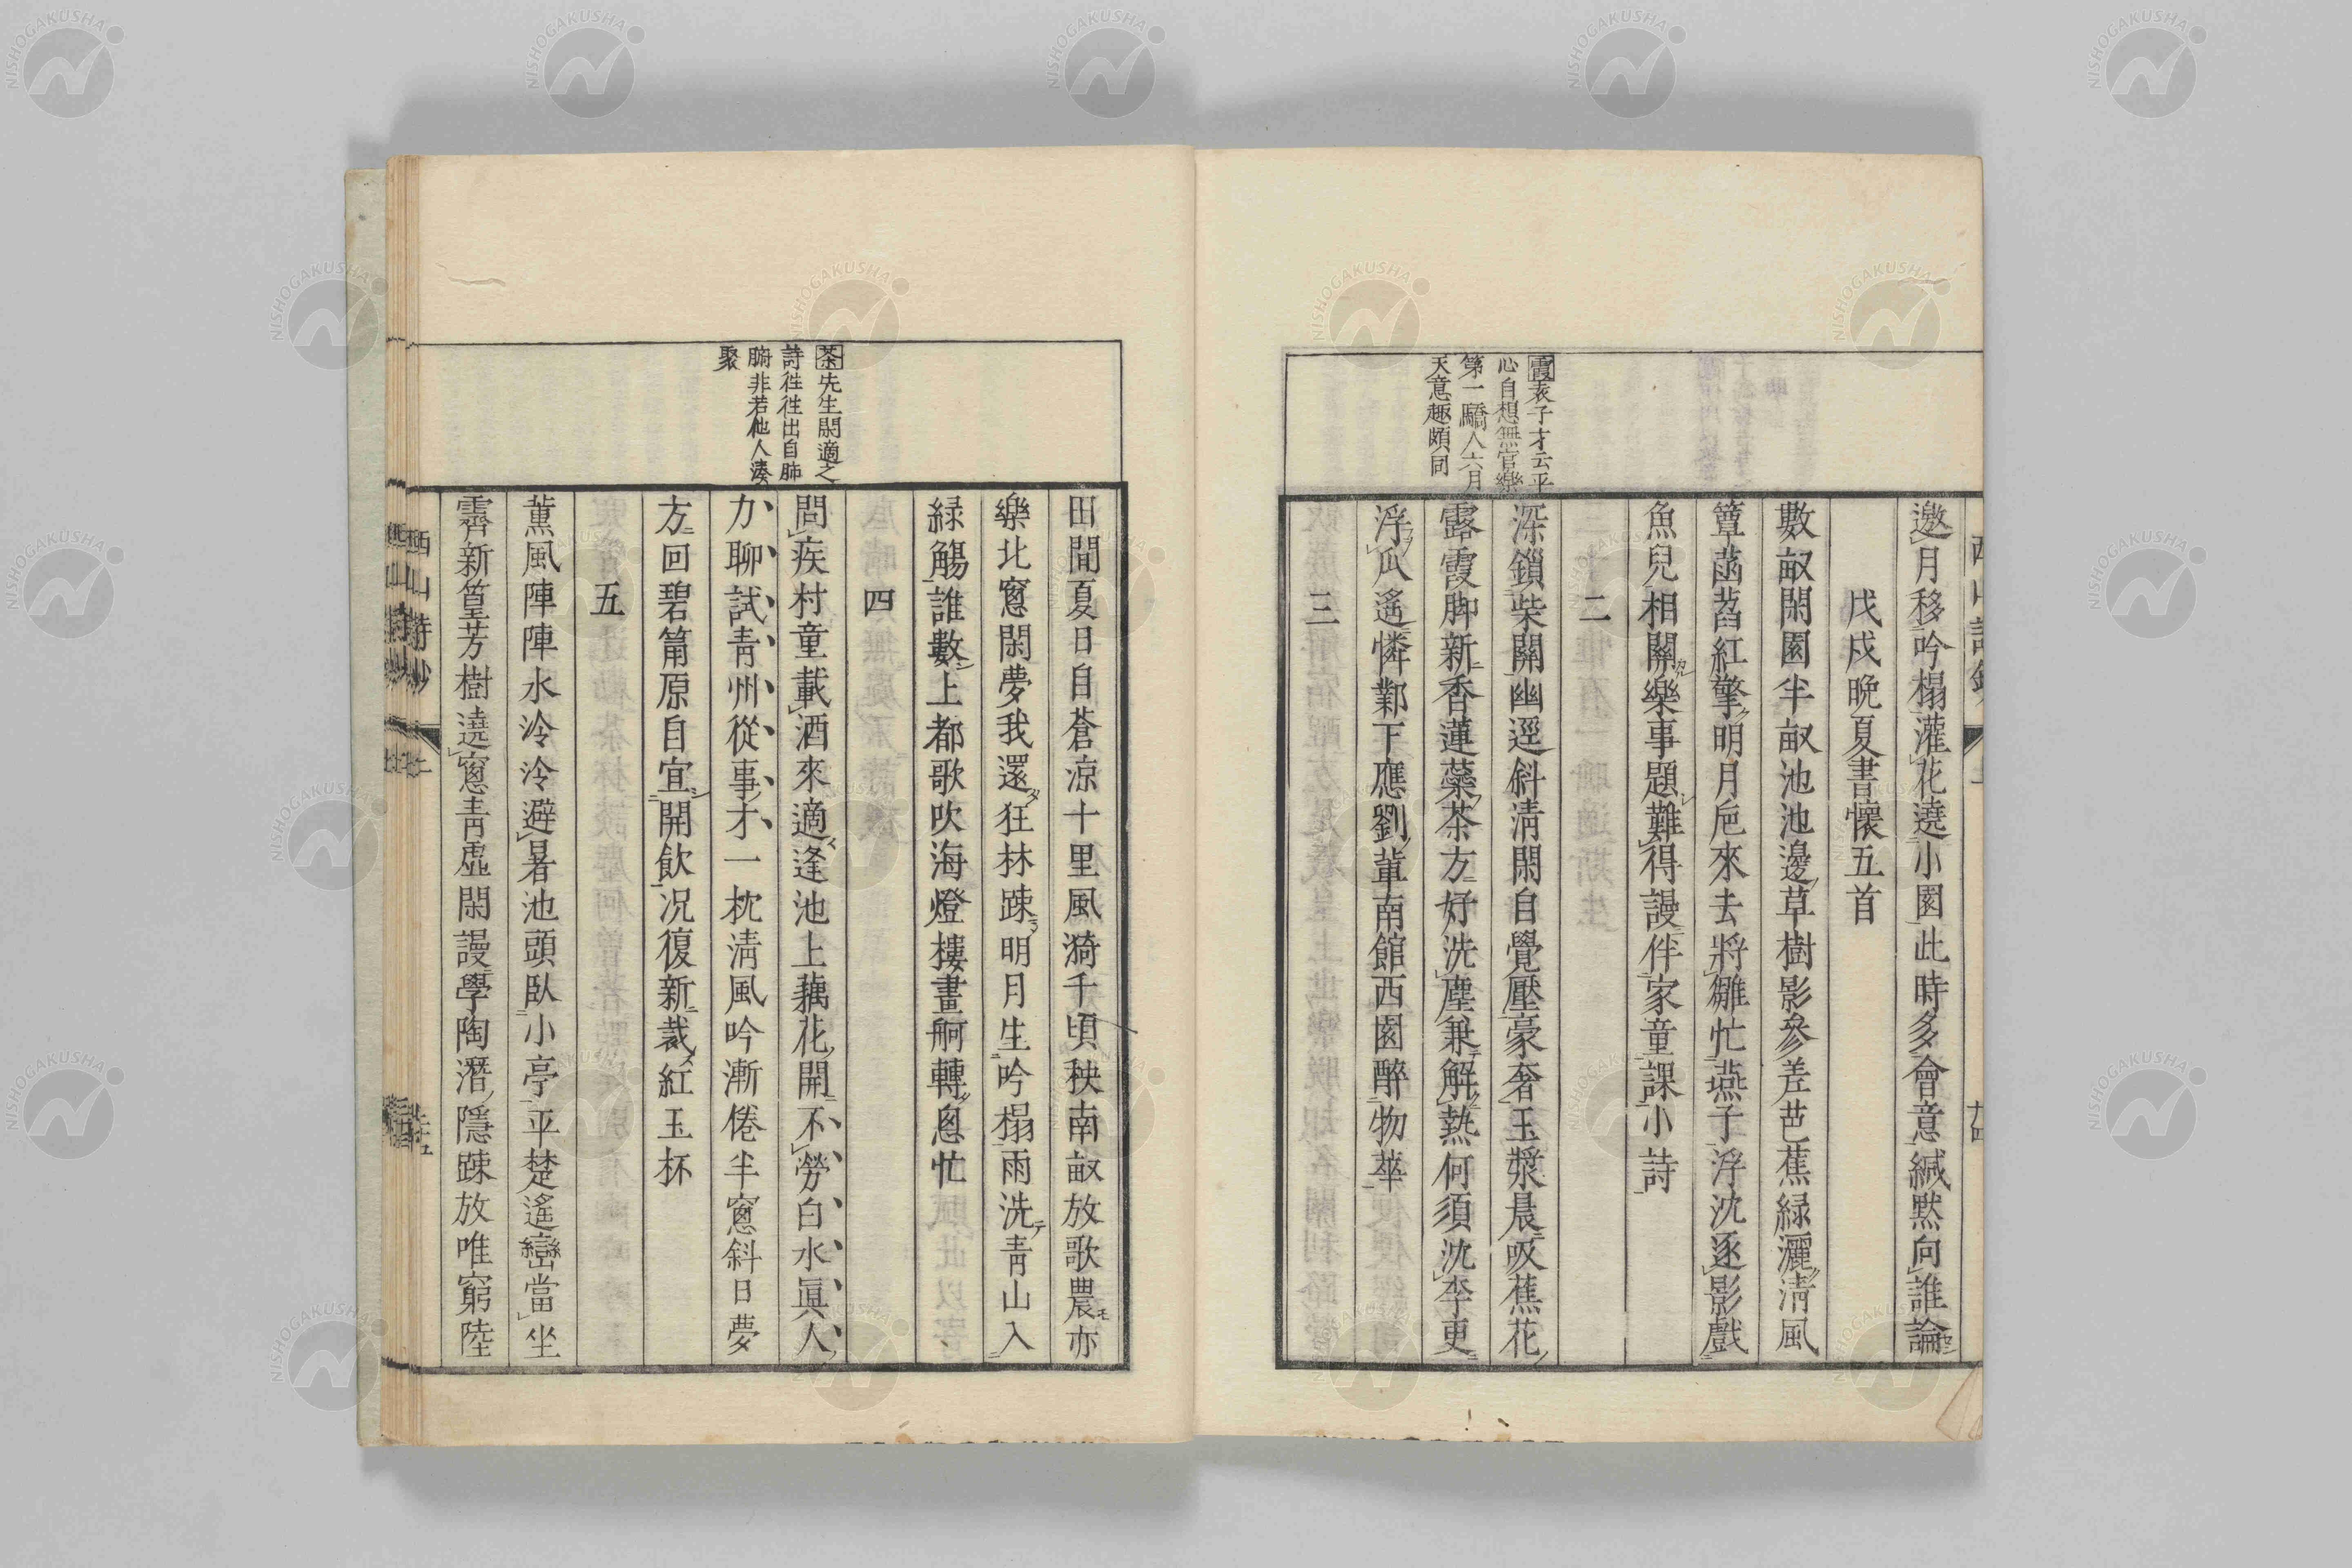 邀月移吟榻灌花遶小園此時多會意緘黙向誰論
戊戌晩夏書懷五首
數畝閑園半畝池池邊草樹影參差芭蕉緑灑清風
簟菡萏紅擎明月巵來去將雛忙燕子浮沈逐影戲
魚兒相關樂事題難得謾伴家童課小詩
二
深鎖柴關幽逕斜清閑自覺壓豪奢玉漿晨吸蕉花
露霞脚新香蓮蘂茶方好洗塵兼解熱何須沈李更
浮瓜遙憐鄴下應劉輩南館西園醉物華
三
霞袁子才云平
心自想無官樂
第一驕人六月
天意趣頗同
田間夏日自蒼涼十里風漪千頃秧南畝放歌農亦
樂北窻閑夢我還狂林踈明月生吟榻雨洗青山入
緑觴誰數上都歌吹海燈樓畫舸轉悤忙
四
問疾村童載酒來適逢池上藕花開不勞白水眞人
力聊試靑州從事才一枕清風吟漸倦半窻斜日夢
方回碧筩原自宜開飲况復新裁紅玉杯
五
薰風陣陣水泠泠避暑池頭臥小亭平楚遙巒當坐
霽新篁芳樹遶窻靑虛閑謾學陶潛隱踈放唯窮陸
茶先生閑適之
詩徃徃出自肺
腑非若他人湊
聚
西山詩鈔
西山詩鈔
NISHOGAKUSHA